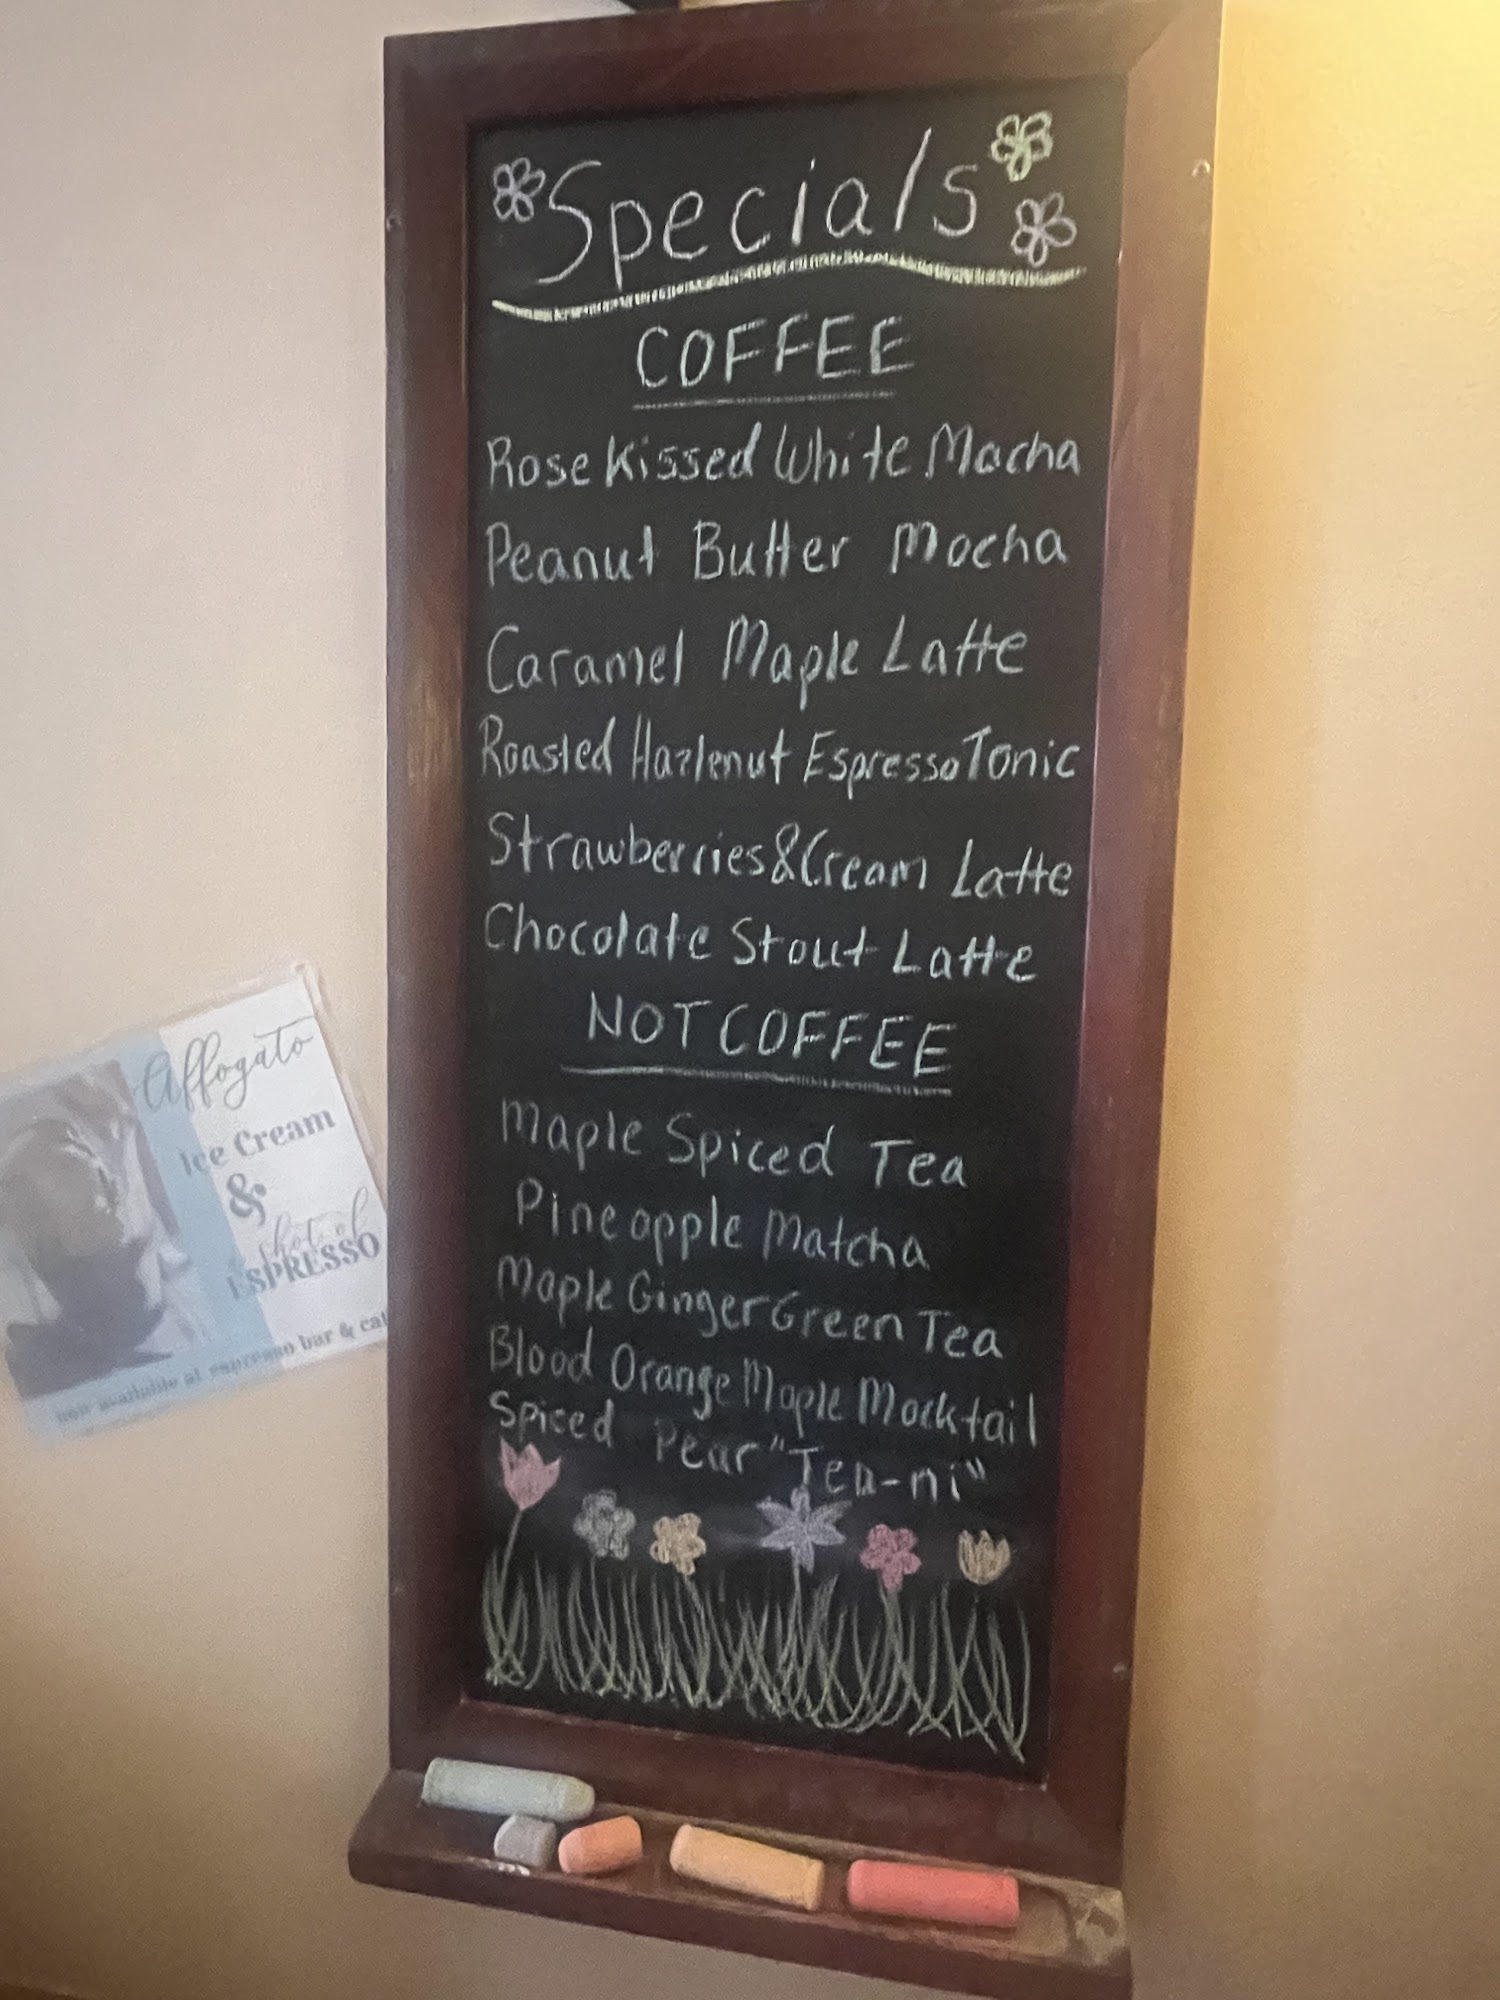 Specials
COFFEE
Rose Kissed White Mocha
Peanut Butter Mocha
Caramel Maple Latte
Roasted Hazlenut Espresso Tonic
Strawberries & Cream Latte
Chocolate Stout Latte
NOT COFFEE
Maple Spiced Tea
Pineapple Matcha
Maple Ginger Green Tea
Blood Orange Maple Mocktail
Spiced Pear "Tea-ni"
Affogato
Ice Cream
&
shot of
ESPRESSO
now available at espresso bar & caf